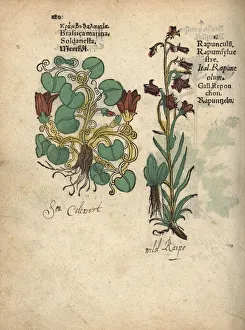 Κράμβη θαλασσία
Brassica marina.
Soldanella.
Meerköl.
Rapunculꝰ,
Rapumsylue
stre.
Ital. Rapune
olum.
Gall. Repon
chon.
Rapuntzeln.
Sea Colwort
wild Rape